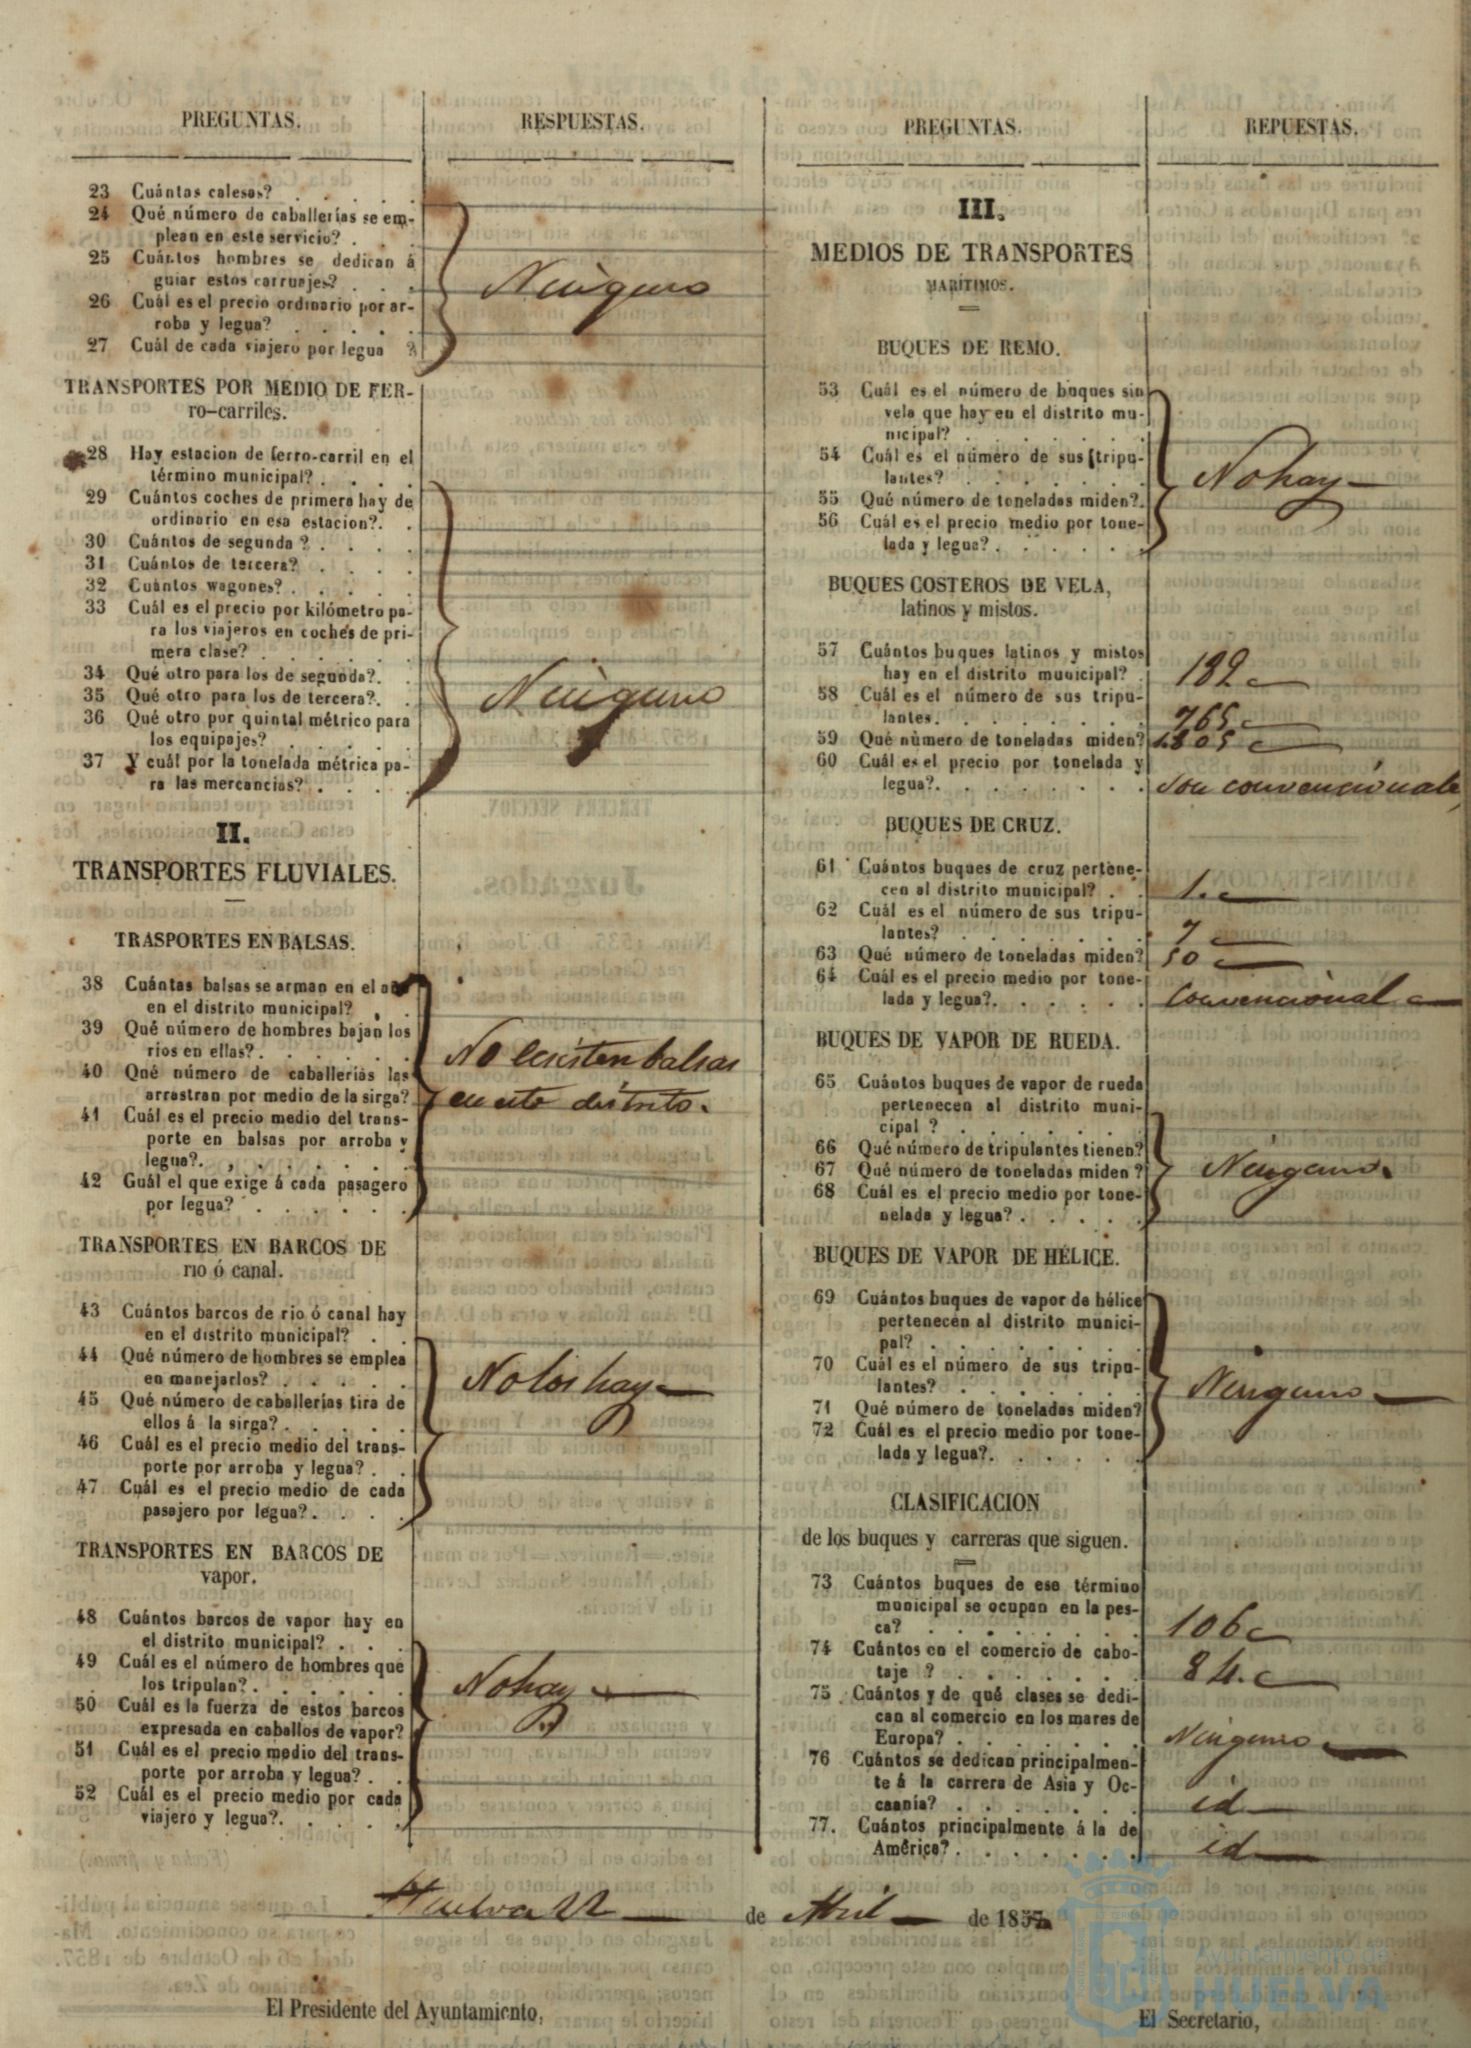 PREGUNTAS.
RESPUESTAS.
23 Cuántas calesas? . . . .
24 Qué número de caballerías se em-
plean en este servicio? . . .
25 Cuántos hombres se dedican á
guiar estos carruajes? . . .
26 Cuál es el precio ordinario por ar-
roba y legua? . . . . .
27 Cuál de cada viajero por legua ?
Ninguno
TRANSPORTES POR MEDIO DE FER-
ro-carriles.
28 Hay estacion de ferro-carril en el
término municipal? . . . .
29 Cuántos coches de primera hay de
ordinario en esa estacion?. .
30 Cuántos de segunda ? . . . .
31 Cuántos de tercera? . . . .
32 Cuántos wagones? . . . . .
33 Cuál es el precio por kilómetro pa-
ra los viajeros en coches de pri-
mera clase? . . . . . .
34 Qué otro para los de segunda?. .
35 Qué otro para los de tercera?. .
36 Qué otro por quintal métrico para
los equipajes? . . . . .
37 Y cuál por la tonelada métrica pa-
ra las mercancias? . . . .
Ninguno
II.
TRANSPORTES FLUVIALES.
TRASPORTES EN BALSAS.
38 Cuántas balsas se arman en el año
en el distrito municipal? . .
39 Qué número de hombres bajan los
rios en ellas? . . . . . .
40 Qué número de caballerías las
arrastran por medio de la sirga?
41 Cuál es el precio medio del trans-
porte en balsas por arroba y
legua?. , . . . . . .
42 Guál el que exige á cada pasagero
por legua? . . . . . .
No ecsisten balsas
en este distrito.
TRANSPORTES EN BARCOS DE
rio ó canal.
43 Cuántos barcos de rio ó canal hay
en el distrito municipal? . .
44 Qué número de hombres se emplea
en manejarlos? . . . . .
45 Qué número de caballerías tira de
ellos á la sirga? . . . . .
46 Cuál es el precio medio del trans-
porte por arroba y legua? . .
47 Cuál es el precio medio de cada
pasajero por legua? . . . .
No los hay
TRANSPORTES EN BARCOS DE
vapor.
48 Cuántos barcos de vapor hay en
el distrito municipal? . . .
49 Cuál es el número de hombres que
los tripulan? . . . . . .
50 Cuál es la fuerza de estos barcos
expresada en caballos de vapor?
51 Cuál es el precio medio del trans-
porte por arroba y legua? . .
52 Cuál es el precio medio por cada
viajero y legua?. . . . .
No hay
PREGUNTAS.
REPUESTAS.
III.
MEDIOS DE TRANSPORTES
MARÍTIMOS.
BUQUES DE REMO.
53 Cuál es el número de buques sin
vela que hay en el distrito mu-
nicipal? . . . . . .
54 Cuál es el número de sus tripu-
lantes? . . . . . . .
55 Qué número de toneladas miden?.
56 Cuál es el precio medio por tone-
lada y legua? . . . . . .
No hay
BUQUES COSTEROS DE VELA,
latinos y mistos.
57 Cuántos buques latinos y mistos
hay en el distrito municipal? .
182
58 Cuál es el número de sus tripu-
lantes. . . . . . . .
765
59 Qué número de toneladas miden?
1.805
60 Cuál es el precio por tonelada y
legua?. . . . . . . .
Son convencionales
BUQUES DE CRUZ.
61 Cuántos buques de cruz pertene-
cen al distrito municipal? . .
1.
62 Cuál es el número de sus tripu-
lantes? . . . . . . .
7
63 Qué número de toneladas miden?
50
64 Cuál es el precio medio por tone-
lada y legua?. . . . . .
Convencional
BUQUES DE VAPOR DE RUEDA.
65 Cuántos buques de vapor de rueda
pertenecen al distrito muni-
cipal ? . . . . . . .
66 Qué número de tripulantes tienen?
67 Qué número de toneladas miden ?
68 Cuál es el precio medio por tone-
nelada y legua? . . . . .
Ninguno.
BUQUES DE VAPOR DE HÉLICE.
69 Cuántos buques de vapor de hélice
pertenecen al distrito munici-
pal? . . . . . . .
70 Cuál es el número de sus tripu-
lantes? . . . . . . .
71 Qué número de toneladas miden?
72 Cuál es el precio medio por tone-
lada y legua?. . . . . .
Ninguno
CLASIFICACION
de los buques y carreras que siguen.
73 Cuántos buques de ese término
municipal se ocupan en la pes-
ca? . . . . . . . .
106
74 Cuántos en el comercio de cabo-
taje ? . . . . . . .
84.
75 Cuántos y de qué clases se dedi-
can al comercio en los mares de
Europa? . . . . . . .
Ninguno
76 Cuántos se dedican principalmen-
te á la carrera de Asia y Oc-
caania? . . . . . . .
id
77. Cuántos principalmente á la de
América? . . . . . . .
id
Huelva 22 de Abril de 1857
El Presidente del Ayuntamiento,
El Secretario,
Ayuntamiento de
HUELVA